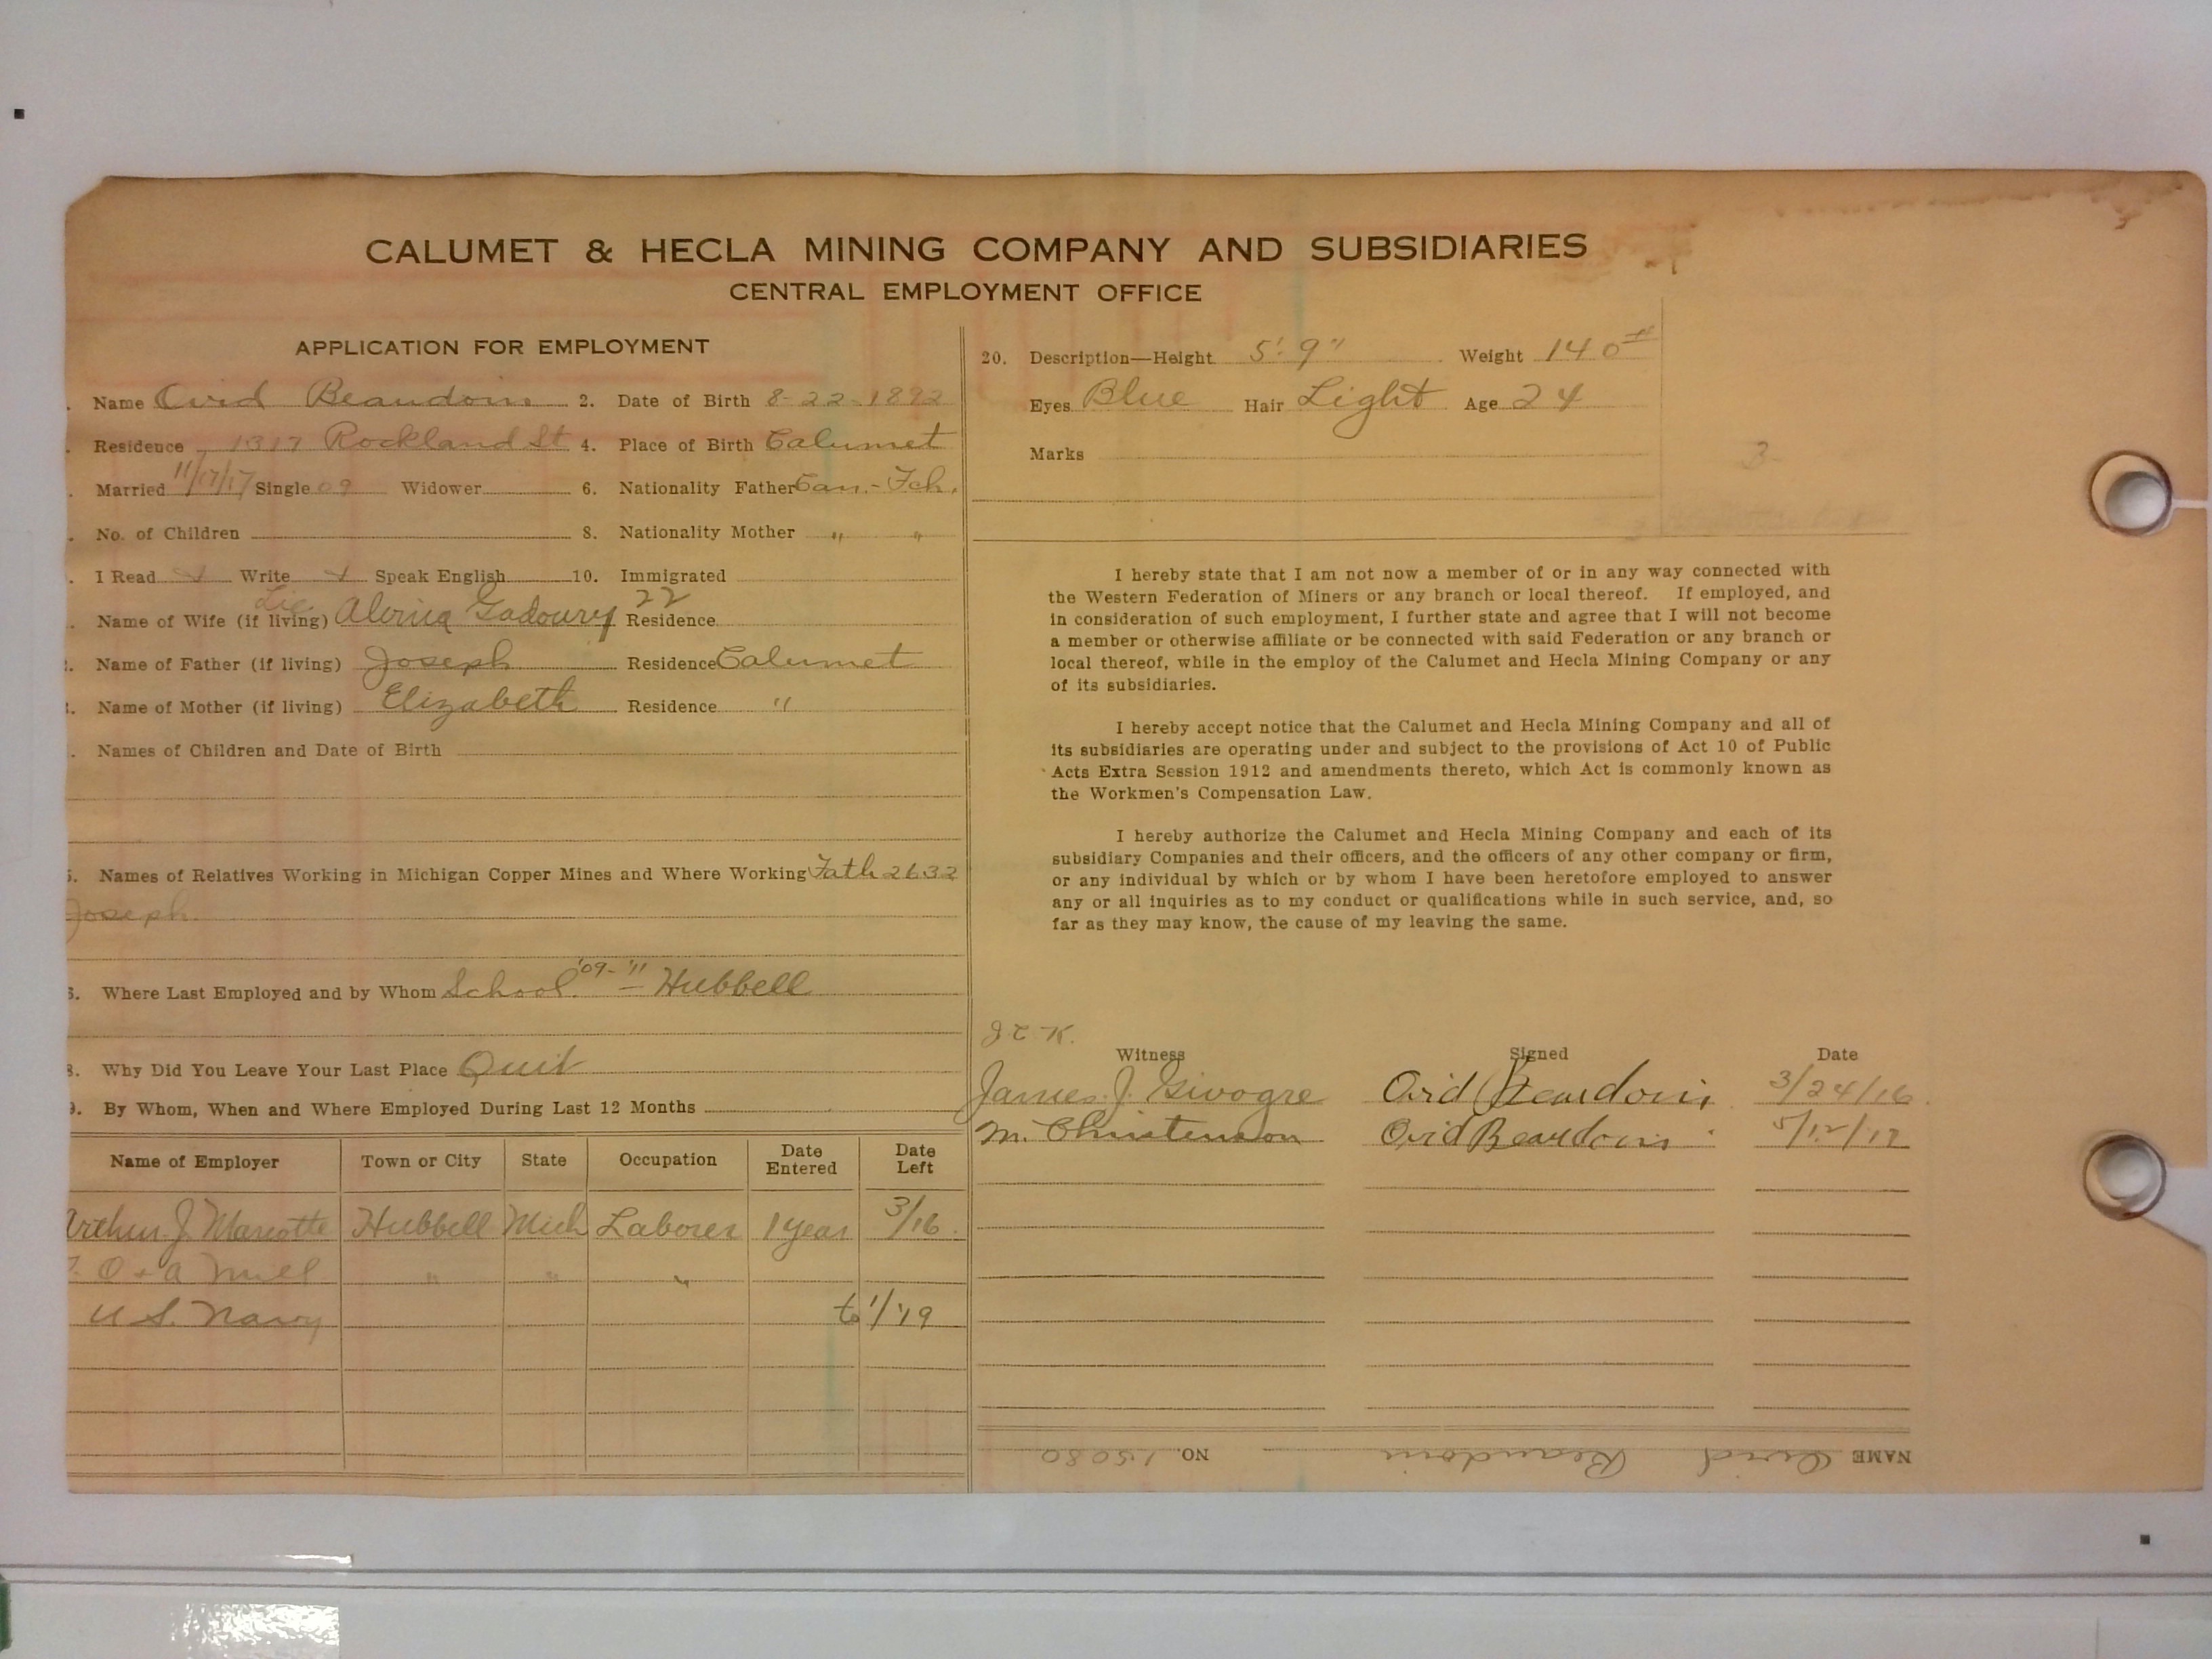 CALUMET & HECLA MINING COMPANY AND SUBSIDIARIES
CENTRAL EMPLOYMENT OFFICE
APPLICATION FOR EMPLOYMENT
. Name Ovid Beaudoin 2. Date of Birth 8-22-1892
. Residence 1317 Rockland St 4. Place of Birth Calumet
. Married 11/17/17 Single 09 Widower 6. Nationality Father Can.-Fch.
. No. of Children 8. Nationality Mother " "
. I Read Write Speak English 10. Immigrated
. Name of Wife (if living) Gadoury 22 Residence
. Name of Father (if living) Joseph Residence Calumet
. Name of Mother (if living) Elizabeth Residence "
. Names of Children and Date of Birth
5. Names of Relatives Working in Michigan Copper Mines and Where Working Fath 2632
Joseph
6. Where Last Employed and by Whom School '09-'11 - Hubbell
8. Why Did You Leave Your Last Place Quit
9. By Whom, When and Where Employed During Last 12 Months
Name of Employer Town or City State Occupation Date Entered Date Left
Arthur J. Marcotte Hubbell Mich Laborer 1 year 3/16.
O & A Mill " " "
U.S. Navy to 1/'19
20. Description—Height 5' 9" Weight 140#
Eyes Blue Hair Light Age 24
Marks
3
I hereby state that I am not now a member of or in any way connected with
the Western Federation of Miners or any branch or local thereof. If employed, and
in consideration of such employment, I further state and agree that I will not become
a member or otherwise affiliate or be connected with said Federation or any branch or
local thereof, while in the employ of the Calumet and Hecla Mining Company or any
of its subsidiaries.
I hereby accept notice that the Calumet and Hecla Mining Company and all of
its subsidiaries are operating under and subject to the provisions of Act 10 of Public
Acts Extra Session 1912 and amendments thereto, which Act is commonly known as
the Workmen's Compensation Law.
I hereby authorize the Calumet and Hecla Mining Company and each of its
subsidiary Companies and their officers, and the officers of any other company or firm,
or any individual by which or by whom I have been heretofore employed to answer
any or all inquiries as to my conduct or qualifications while in such service, and, so
far as they may know, the cause of my leaving the same.
Witness Signed Date
James J. Givogre Ovid Beaudoin 3/24/16
M. Christenson Ovid Beaudoin 5/12/17
NAME Ovid Beaudoin NO. 15080